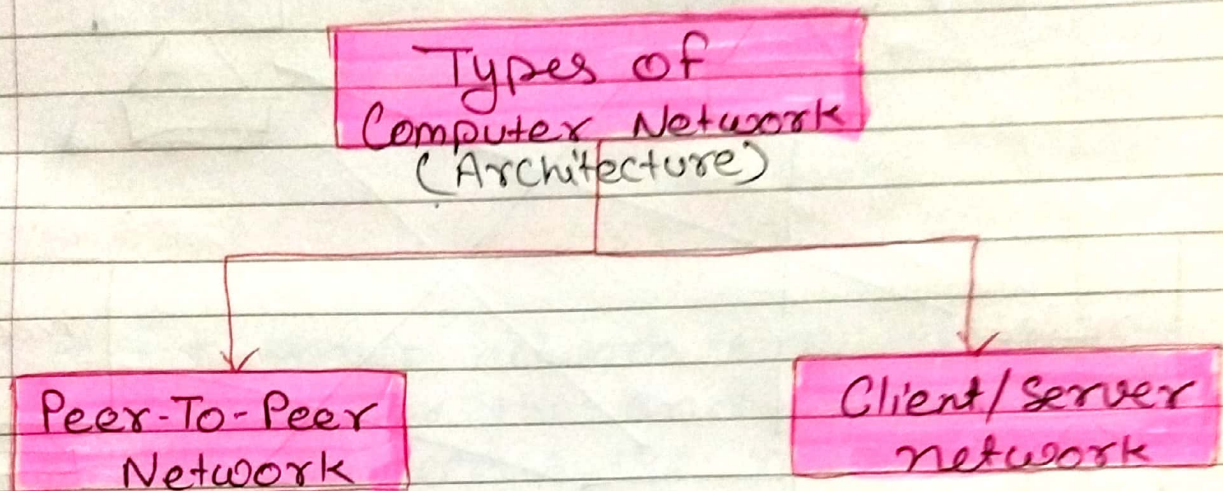 Types of
Computer Network
(Architecture)
Peer-To-Peer
Network
Client/Server
network